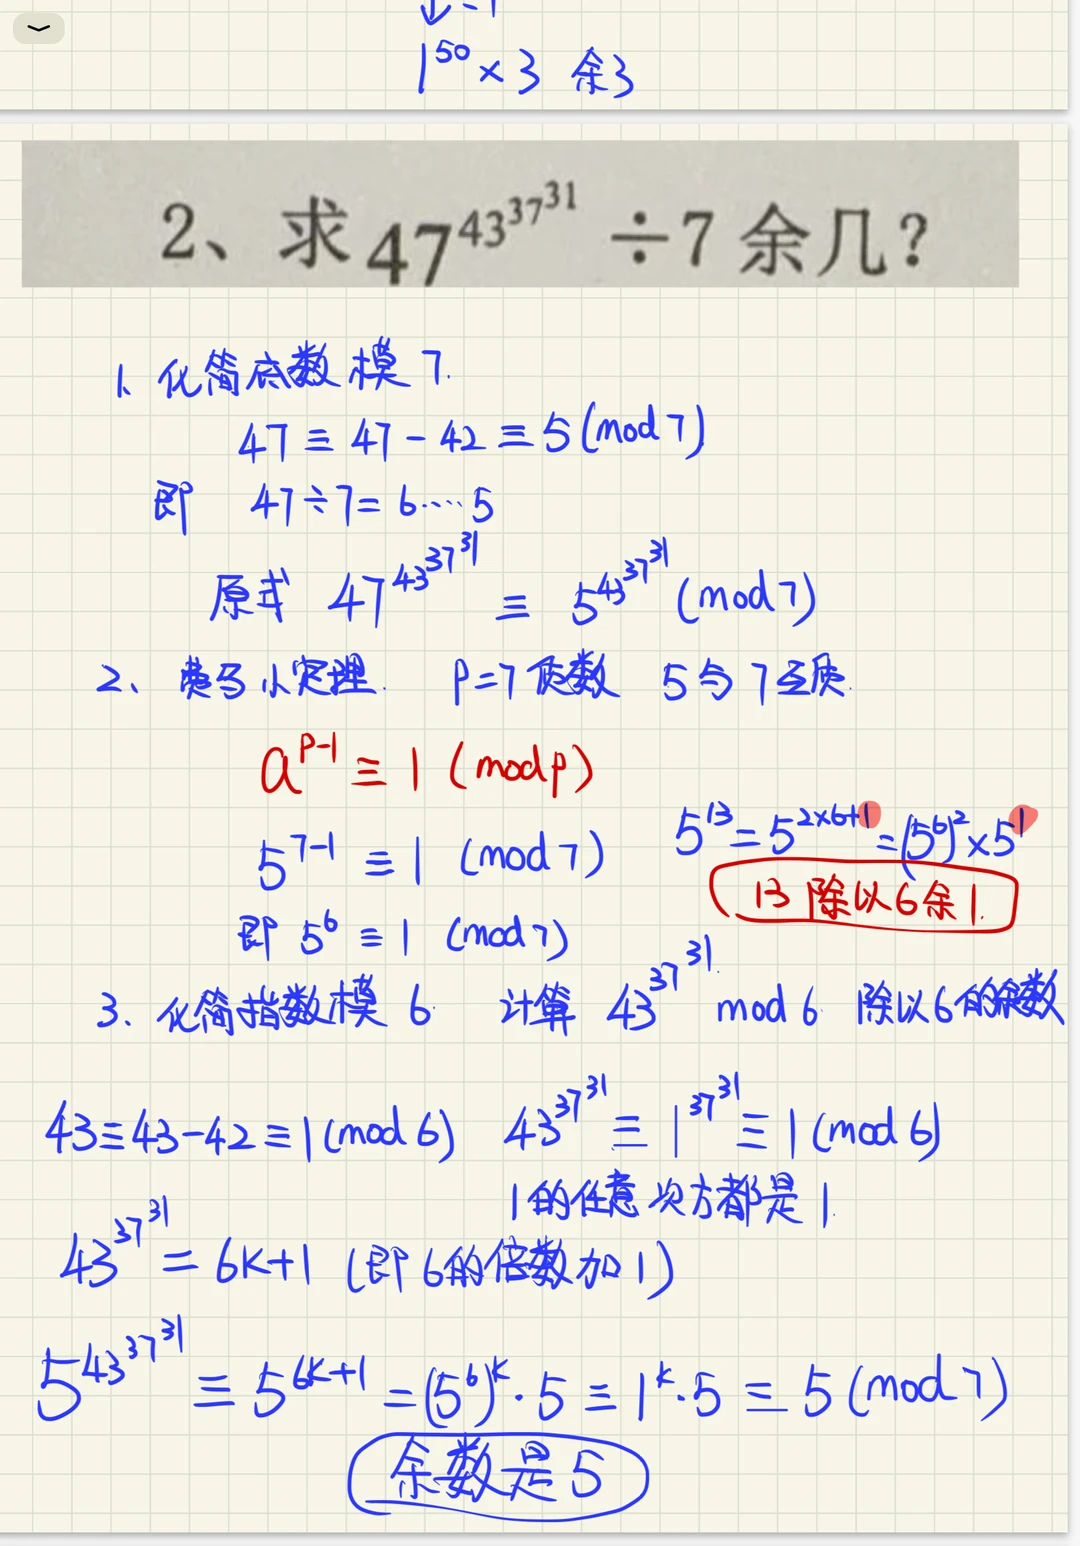 1⁵⁰×3 余3
2、求 47^43^37^31 ÷7 余几?
1、化简底数 模 7.
47≡47-42≡5(mod 7)
即 47÷7=6…5
原式 47^43^37^31 ≡ 5^43^37^31 (mod 7)
2、费马小定理. P=7质数 5与7互质.
a^(P-1) ≡ 1 (mod p)
5^(7-1) ≡ 1 (mod 7)
5¹³=5^(2×6+1)=(5⁶)²×5¹
13除以6余1.
即 5⁶≡1 (mod 7)
3、化简指数模 6. 计算 43^37^31 mod 6 除以6的余数
43≡43-42≡1(mod 6) 43^37^31≡1^37^31≡1(mod 6)
1的任意次方都是1.
43^37^31=6K+1 (即6的倍数加1)
5^43^37^31≡5^(6K+1)=(5⁶)^K·5≡1^K·5≡5(mod 7)
余数是5